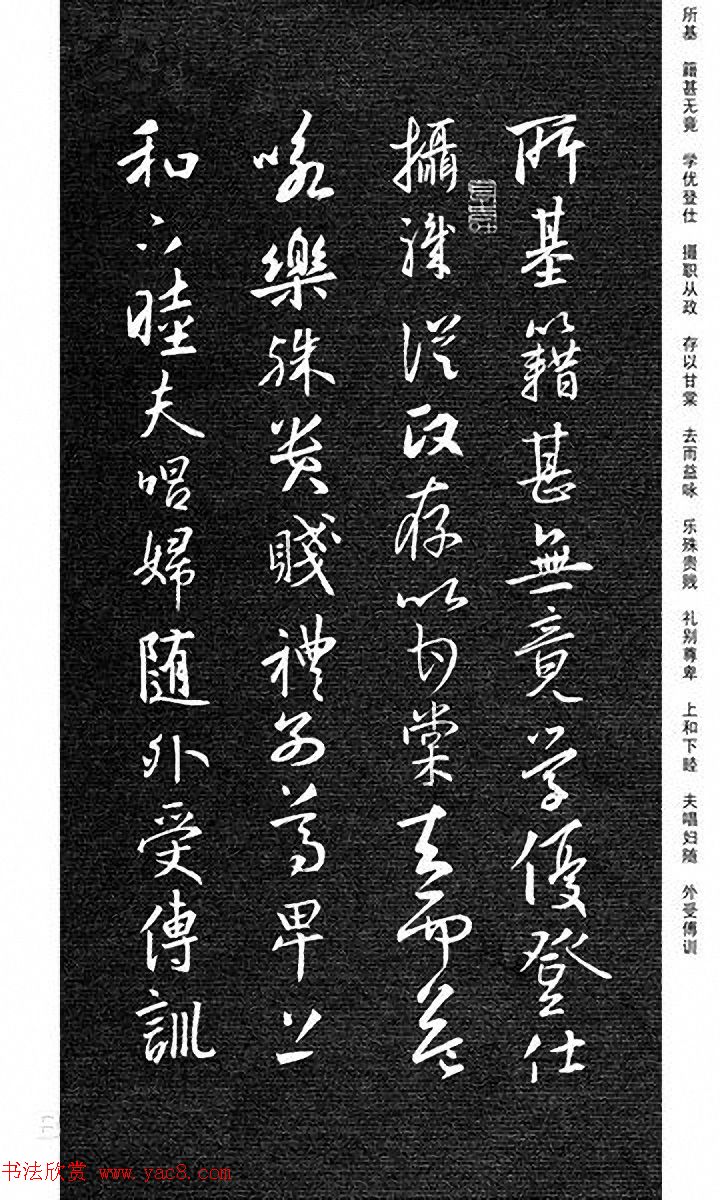 所基 籍甚无竟 学优登仕 摄职从政 存以甘棠 去而益咏 乐殊贵贱 礼别尊卑 上和下睦 夫唱妇随 外受傅训
所基籍甚無竟學優登仕
攝職從政存以甘棠去而益
咏樂殊貴賤禮別尊卑上
和下睦夫唱婦随外受傅訓
书法欣赏 www.yac8.com